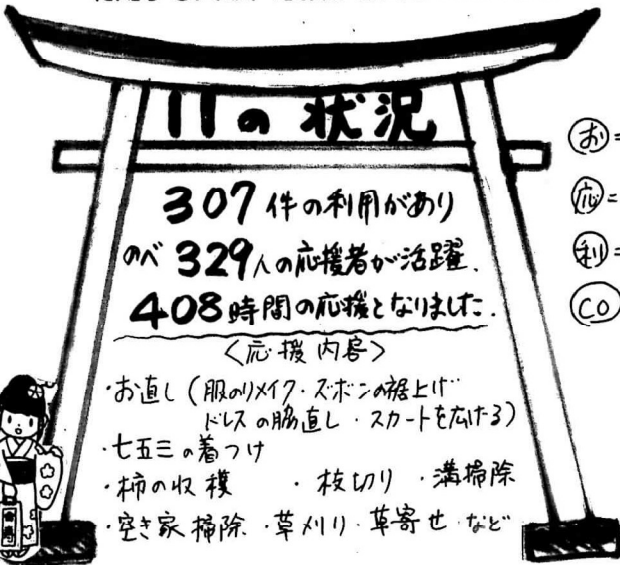 11の状況
307件の利用があり
のべ329人の応援者が活躍.
408時間の応援となりました.
〈応援内容〉
・お直し(服のリメイク・ズボンの裾上げ
ドレスの脇直し・スカートを広げる)
・七五三の着つけ
・柿の収穫 ・枝切り ・溝掃除
・空き家掃除 ・草刈り・草寄せ など
お=
応=
利=
CO